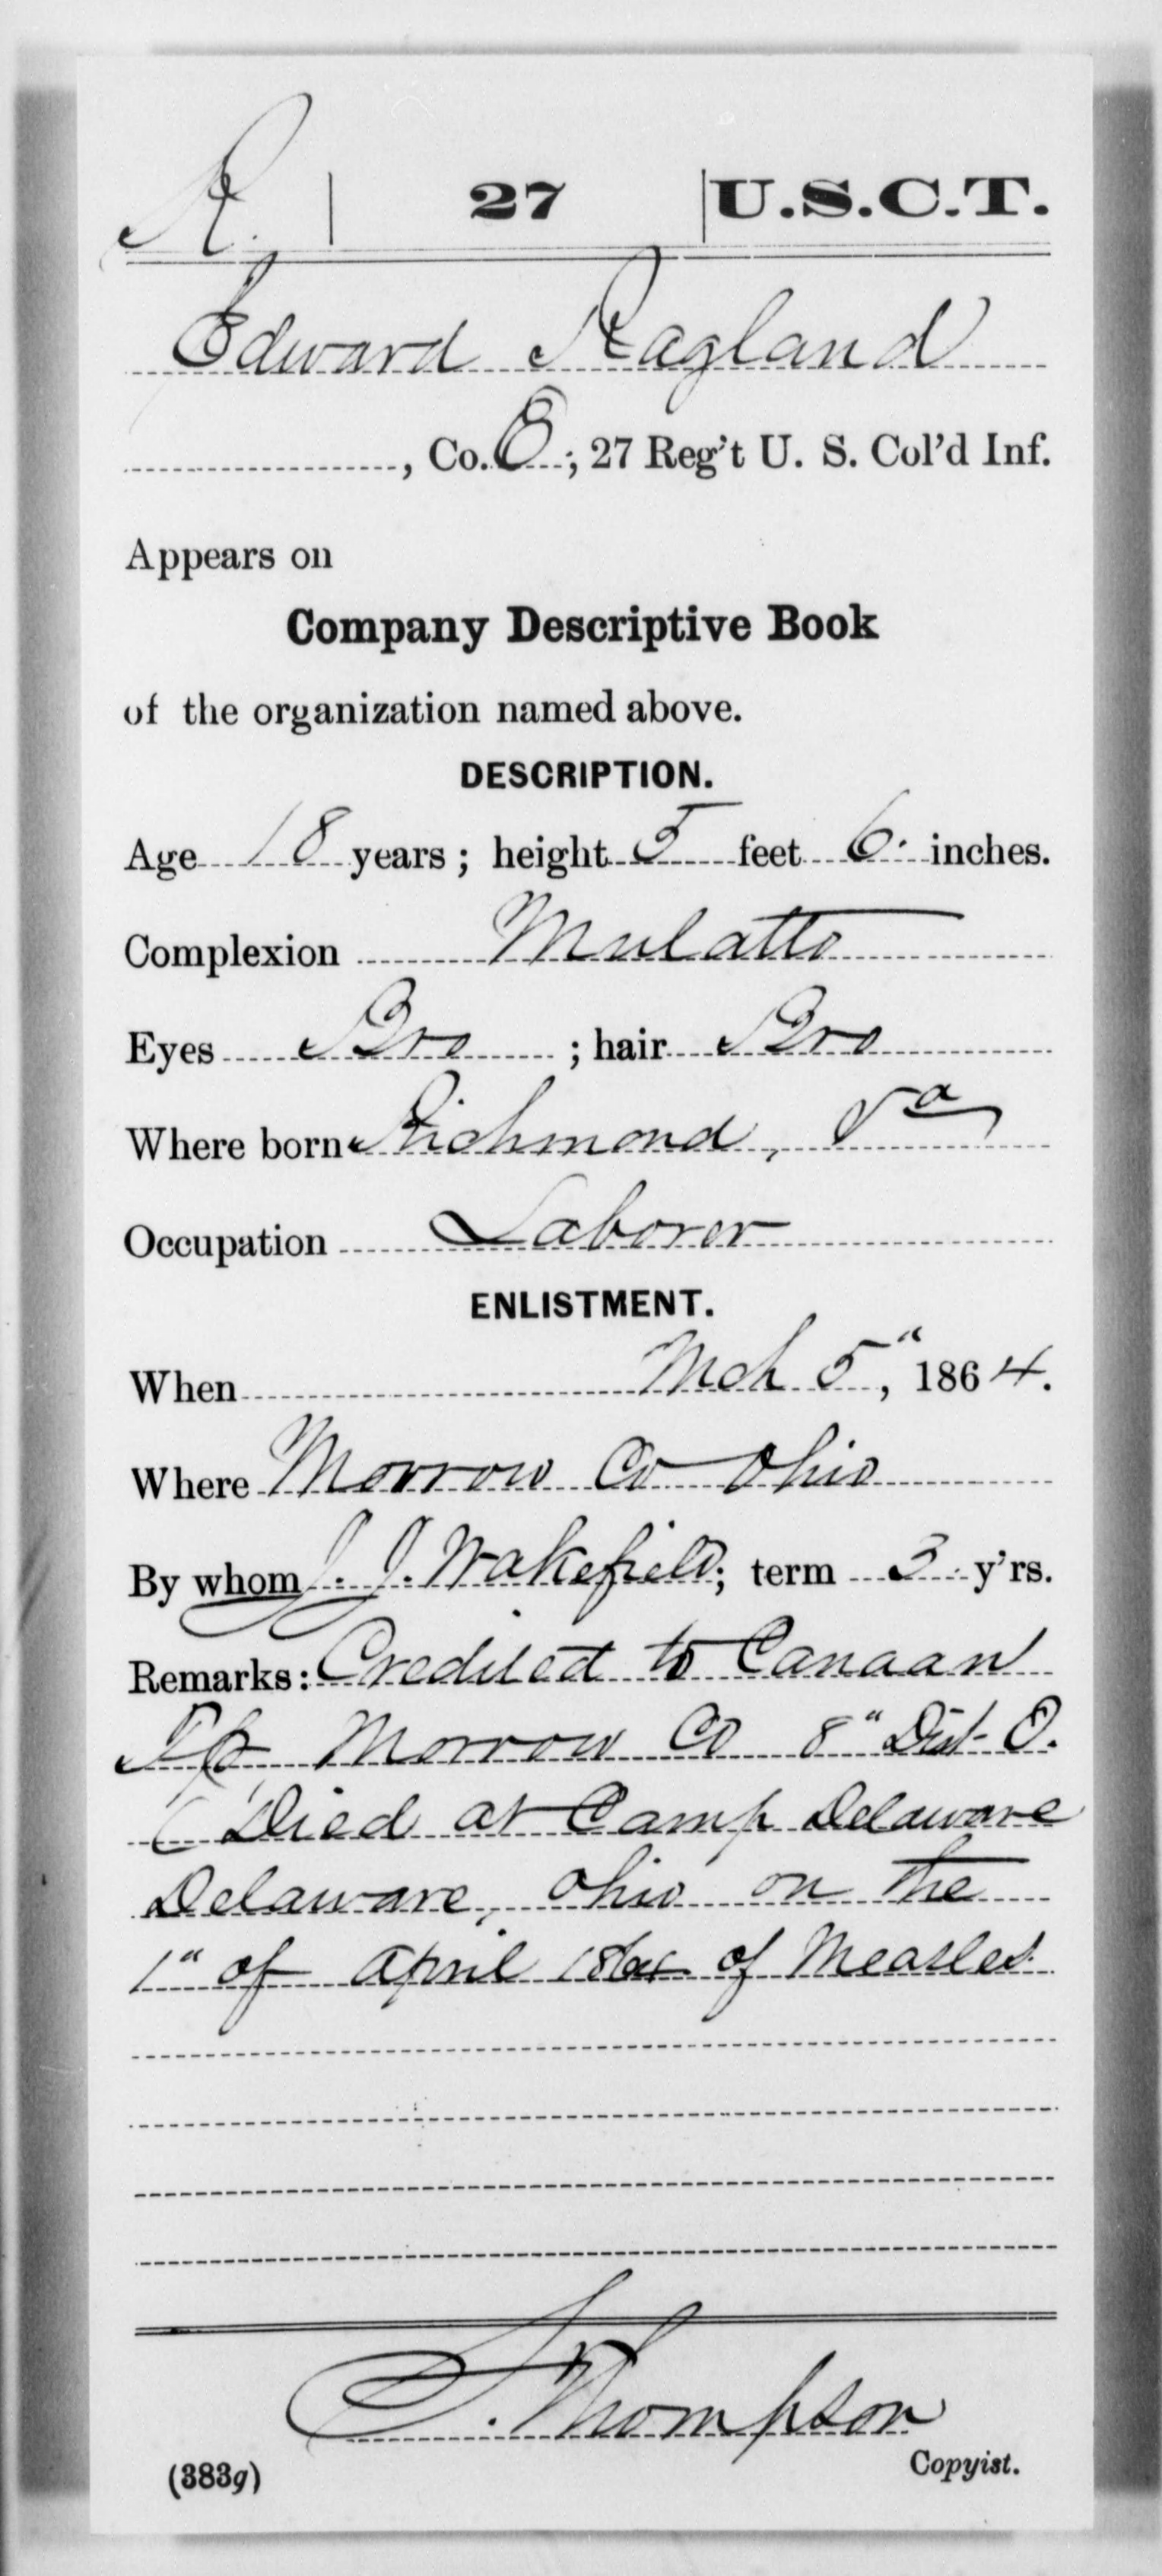 R. | 27 | U.S.C.T.
Edward Ragland
, Co. E; 27 Reg't U. S. Col'd Inf.
Appears on
Company Descriptive Book
of the organization named above.
DESCRIPTION.
Age 18 years; height 5 feet 6 inches.
Complexion Mulatto
Eyes Bro; hair Bro
Where born Richmond, Va
Occupation Laborer
ENLISTMENT.
When Mch 5", 1864.
Where Morrow Co Ohio
By whom J. J. Wakefield; term 3 y'rs.
Remarks: Credited to Canaan
Tp, Morrow Co 8" Dist O.
Died at Camp Delaware
Delaware, Ohio on the
1" of April 1864 of Measles
Thompson
Copyist.
(383g)